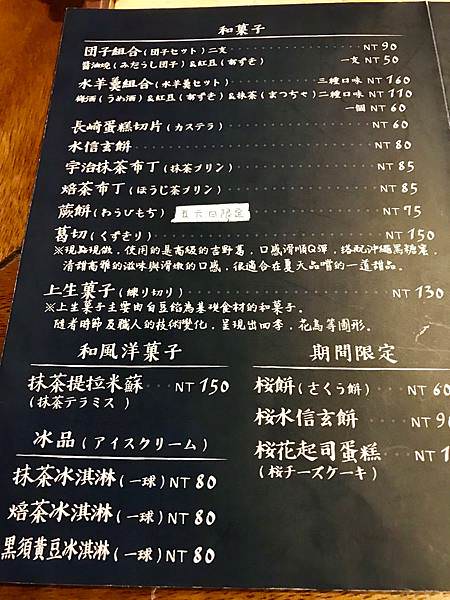 和菓子
団子組合(団子セット)二支 NT 90
醬油燒(みだうし団子)&紅豆(あずき) 一支 NT 50
水羊羹組合(水羊羹セット) 三種口味 NT 160
梅酒(うめ酒)&紅豆(あずき)&抹茶(まつぢゃ)二種口味 NT 110
一個 NT 60
長崎蛋糕切片(カステラ) NT 60
水信玄餅 NT 80
宇治抹茶布丁(抹茶プリン) NT 85
焙茶布丁(ほうじ茶プリン) NT 85
蕨餅(わらびもち) 五六日限定 NT 75
葛切(くずきり) NT 150
※現點現做,使用的是高級的吉野葛,口感滑順Q彈,搭配沖繩黑糖蜜,
清甜高雅的滋味與滑嫩的口感,很適合在夏天品嚐的一道甜品。
上生菓子(練り切り) NT 130
※上生菓子主要由白豆餡為基礎食材的和菓子。
隨著時節及職人的技術變化,呈現出四季,花鳥等圖形。
和風洋菓子
抹茶提拉米蘇 NT 150
(抹茶テラミス )
冰品(アイスクリーム)
抹茶冰淇淋(一球)NT 80
焙茶冰淇淋(一球)NT 80
黑須黃豆冰淇淋(一球)NT 80
期間限定
桜餅(さくう餅) NT 60
桜水信玄餅 NT
桜花起司蛋糕 NT
(桜チーズケーキ)